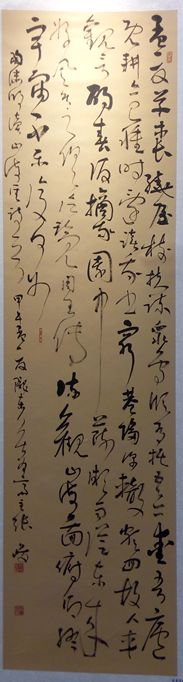 孟夏草木長繞屋樹扶疏眾鳥欣有托吾亦愛吾廬
既耕亦已種時還讀我書窮巷隔深轍頗回故人車
歡言酌春酒摘我園中蔬微雨從東來
好風與之俱泛覽周王傳流觀山海圖俯仰終
宇宙不樂復何如
陶淵明讀山海經詩之一 甲午